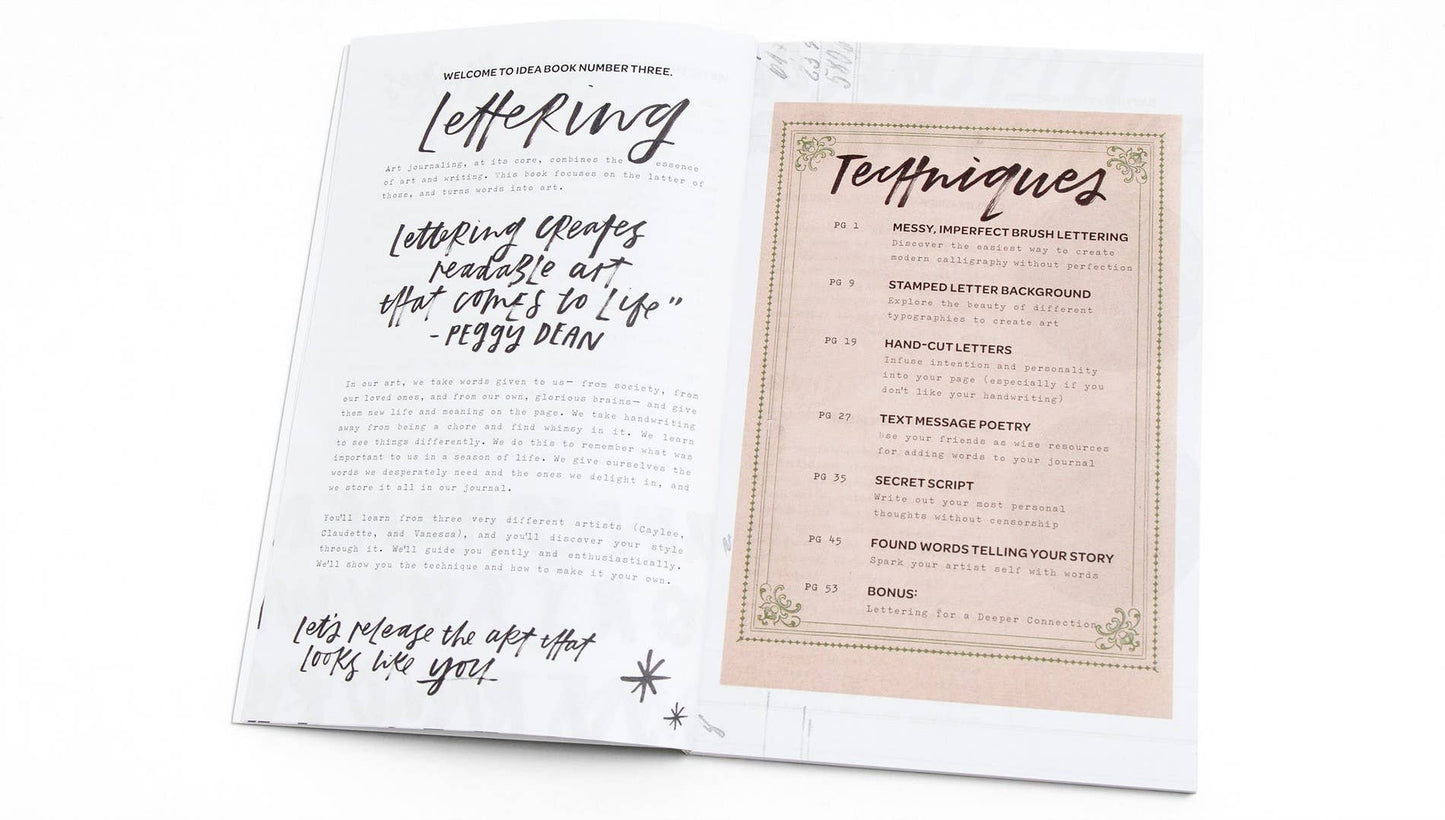 WELCOME TO IDEA BOOK NUMBER THREE.
Lettering
Art journaling, at its core, combines the essence
of art and writing. This book focuses on the latter of
those, and turns words into art.
Lettering creates
readable art
that comes to life"
- Peggy Dean
In our art, we take words given to us— from society, from
our loved ones, and from our own, glorious brains— and give
them new life and meaning on the page. We take handwriting
away from being a chore and find whimsy in it. We learn
to see things differently. We do this to remember what was
important to us in a season of life. We give ourselves the
words we desperately need and the ones we delight in, and
we store it all in our journal.
You'll learn from three very different artists (Caylee,
Claudette, and Vanessa), and you'll discover your style
through it. We'll guide you gently and enthusiastically.
We'll show you the technique and how to make it your own.
Let's release the art that
looks like you
Techniques
PG 1 MESSY, IMPERFECT BRUSH LETTERING
Discover the easiest way to create
modern calligraphy without perfection
PG 9 STAMPED LETTER BACKGROUND
Explore the beauty of different
typographies to create art
PG 19 HAND-CUT LETTERS
Infuse intention and personality
into your page (especially if you
don't like your handwriting)
PG 27 TEXT MESSAGE POETRY
Use your friends as wise resources
for adding words to your journal
PG 35 SECRET SCRIPT
Write out your most personal
thoughts without censorship
PG 45 FOUND WORDS TELLING YOUR STORY
Spark your artist self with words
PG 53 BONUS:
Lettering for a Deeper Connection